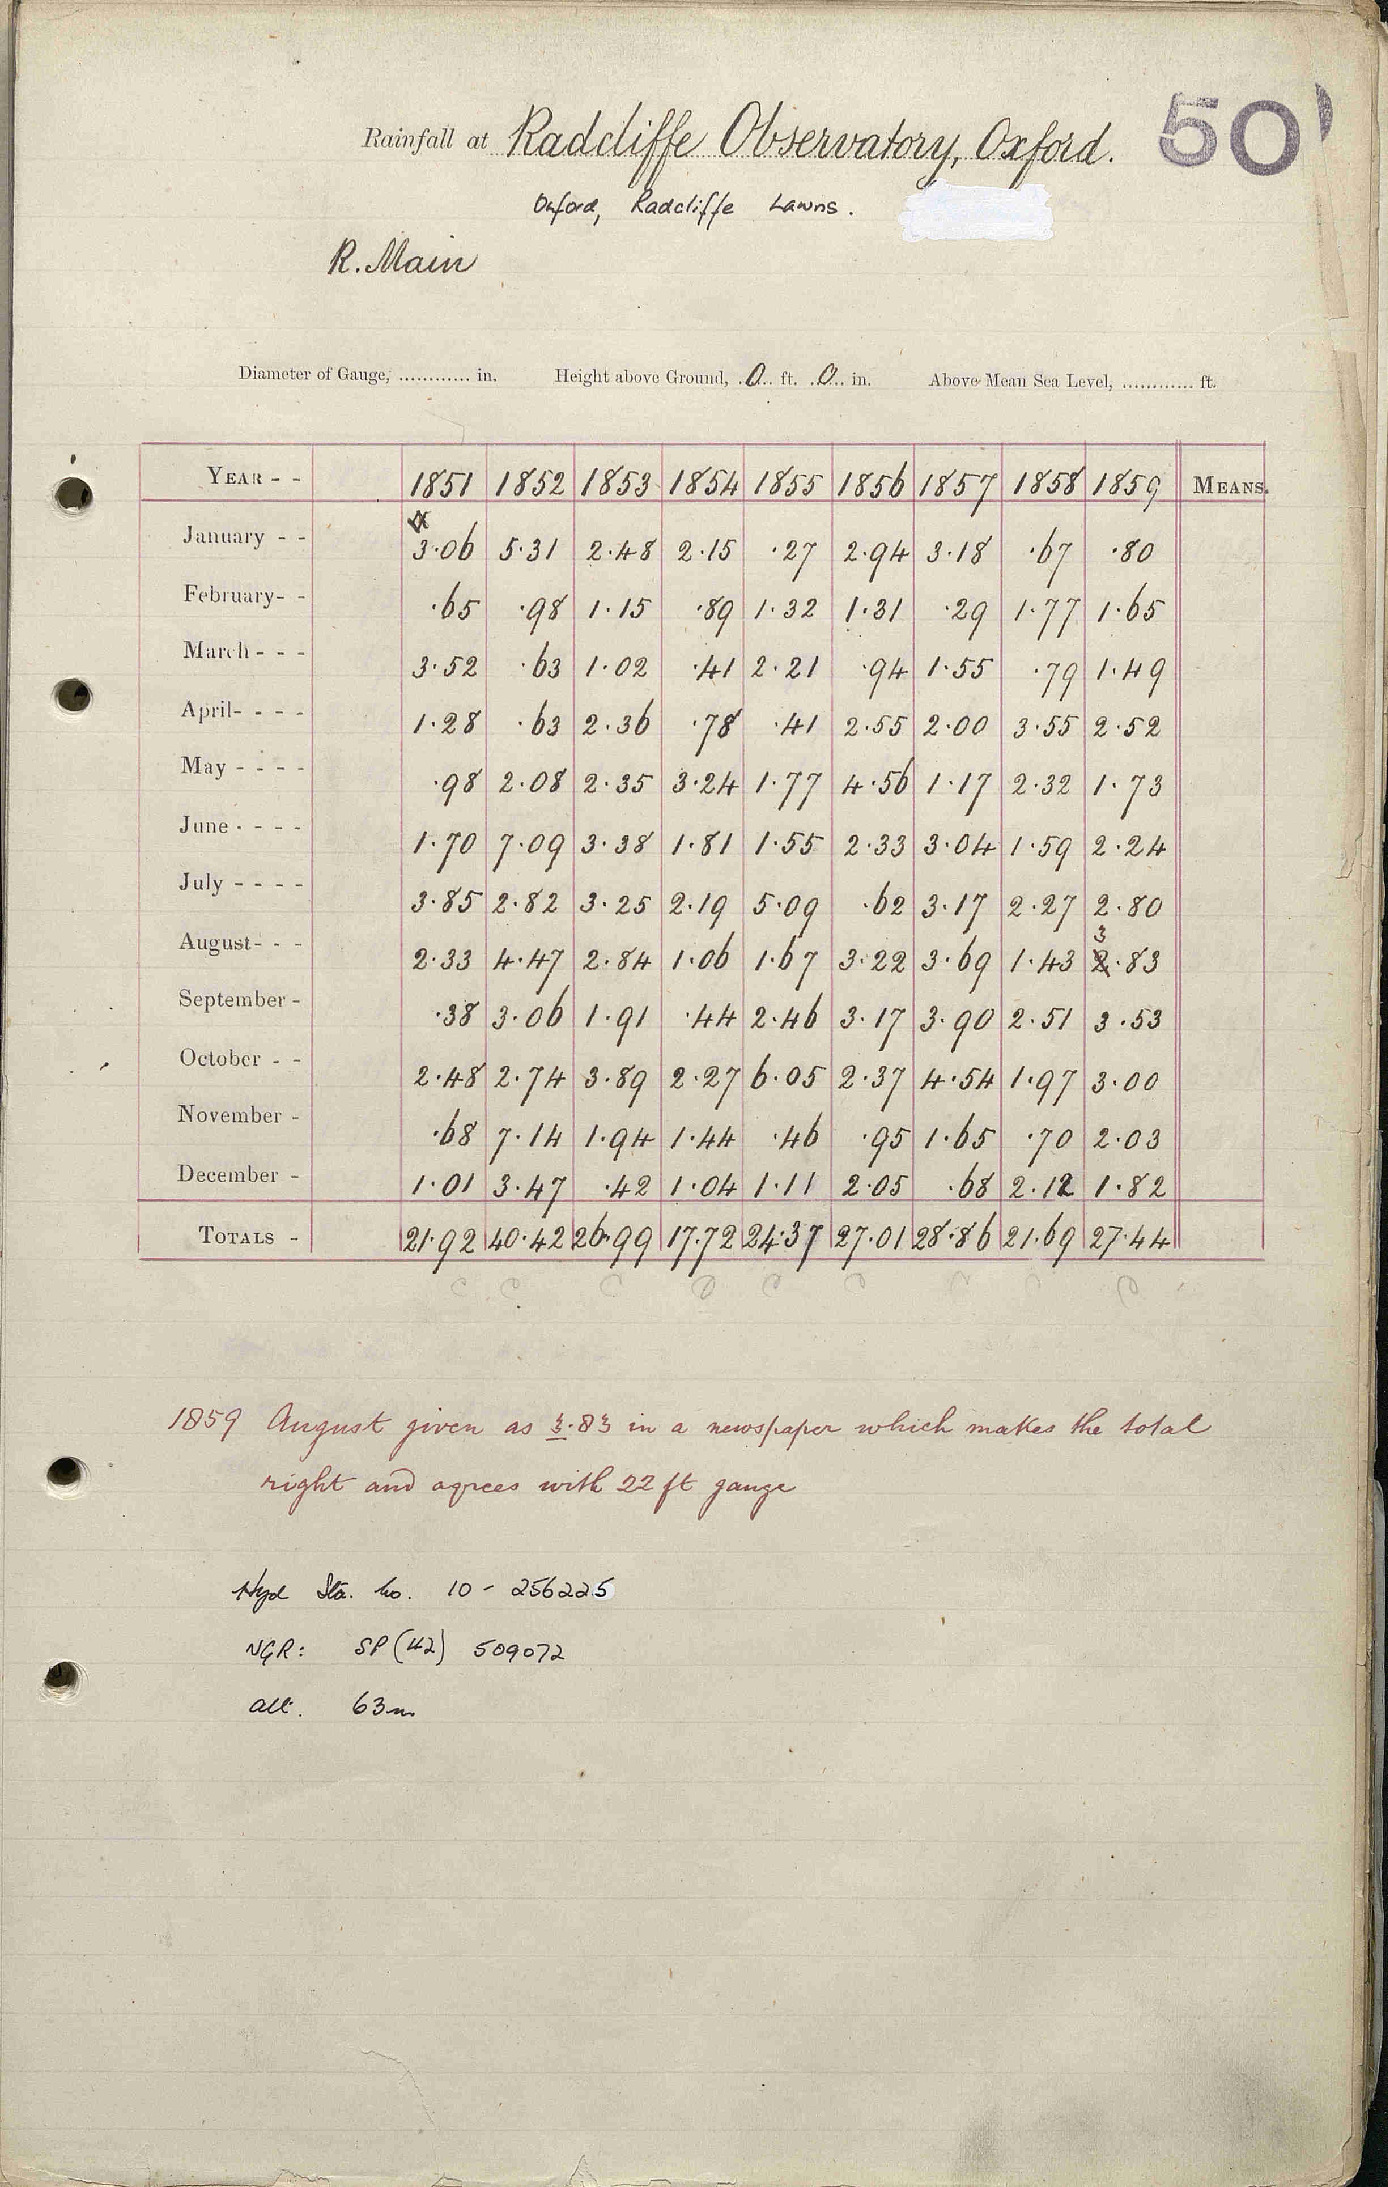 Rainfall at Radcliffe Observatory, Oxford. 50
Oxford, Radcliffe Lawns.
R. Main
Diameter of Gauge, ............ in. Height above Ground, ..0.. ft. ..0.. in. Above Mean Sea Level, ............ ft.
YEAR - - 1851 1852 1853 1854 1855 1856 1857 1858 1859 MEANS.
January - - 3.06 5.31 2.48 2.15 .27 2.94 3.18 .67 .80
February- - .65 .98 1.15 .89 1.32 1.31 .29 1.77 1.65
March - - - 3.52 .63 1.02 .41 2.21 .94 1.55 .79 1.49
April- - - - 1.28 .63 2.36 .78 .41 2.55 2.00 3.55 2.52
May - - - - .98 2.08 2.35 3.24 1.77 4.56 1.17 2.32 1.73
June - - - - 1.70 7.09 3.38 1.81 1.55 2.33 3.04 1.59 2.24
July - - - - 3.85 2.82 3.25 2.19 5.09 .62 3.17 2.27 2.80
3
August- - - 2.33 4.47 2.84 1.06 1.67 3.22 3.69 1.43 2.83
September - .38 3.06 1.91 .44 2.46 3.17 3.90 2.51 3.53
October - - 2.48 2.74 3.89 2.27 6.05 2.37 4.54 1.97 3.00
November - .68 7.14 1.94 1.44 .46 .95 1.65 .70 2.03
December - 1.01 3.47 .42 1.04 1.11 2.05 .68 2.12 1.82
TOTALS - 21.92 40.42 26.99 17.72 24.37 27.01 28.86 21.69 27.44
1859 August given as 3.83 in a newspaper which makes the total
right and agrees with 22 ft gauge
Hyd Sta. No. 10 - 256225
NGR: SP (42) 509072
alt. 63m